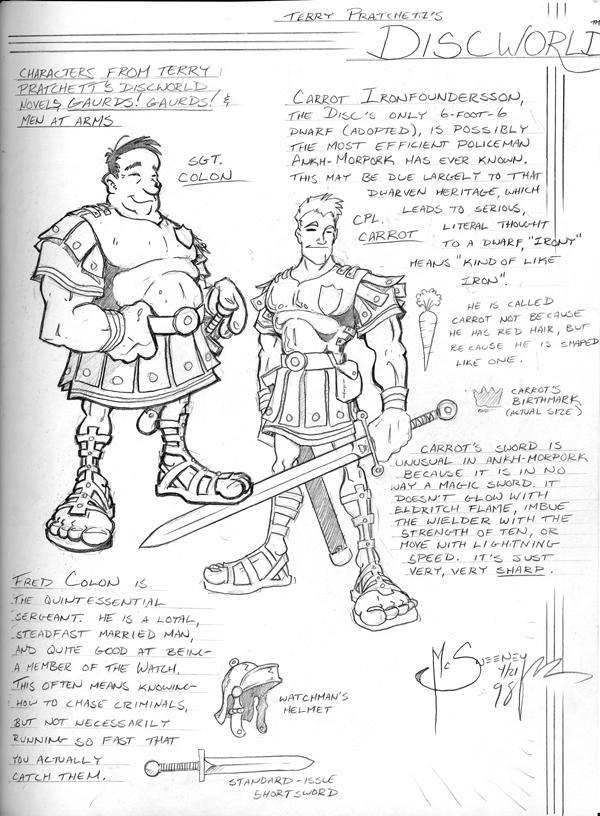 TERRY PRATCHETT'S
DISCWORLD™
CHARACTERS FROM TERRY
PRATCHETT'S DISCWORLD
NOVELS, GAURDS! GAURDS! &
MEN AT ARMS
SGT.
COLON
CARROT IRONFOUNDERSSON,
THE DISC'S ONLY 6-FOOT-6
DWARF (ADOPTED), IS POSSIBLY
THE MOST EFFICIENT POLICEMAN
ANKH-MORPORK HAS EVER KNOWN.
THIS MAY BE DUE LARGELY TO THAT
DWARVEN HERITAGE, WHICH
LEADS TO SERIOUS,
LITERAL THOUGHT
TO A DWARF, "IRONY"
MEANS "KIND OF LIKE
IRON".
CPL.
CARROT
HE IS CALLED
CARROT NOT BECAUSE
HE HAS RED HAIR, BUT
BECAUSE HE IS SHAPED
LIKE ONE.
CARROT'S
BIRTHMARK
(ACTUAL SIZE)
CARROT'S SWORD IS
UNUSUAL IN ANKH-MORPORK
BECAUSE IT IS IN NO
WAY A MAGIC SWORD. IT
DOESN'T GLOW WITH
ELDRITCH FLAME, IMBUE
THE WIELDER WITH THE
STRENGTH OF TEN, OR
MOVE WITH LIGHTNING
SPEED. IT'S JUST
VERY, VERY SHARP.
FRED COLON IS
THE QUINTESSENTIAL
SERGEANT. HE IS A LOTAL,
STEADFAST MARRIED MAN,
AND QUITE GOOD AT BEING
A MEMBER OF THE WATCH.
THIS OFTEN MEANS KNOWING
HOW TO CHASE CRIMINALS,
BUT NOT NECESSARILY
RUNNING SO FAST THAT
YOU ACTUALLY
CATCH THEM.
WATCHMAN'S
HELMET
STANDARD-ISSUE
SHORTSWORD
MCSWEENEY
4/21
98